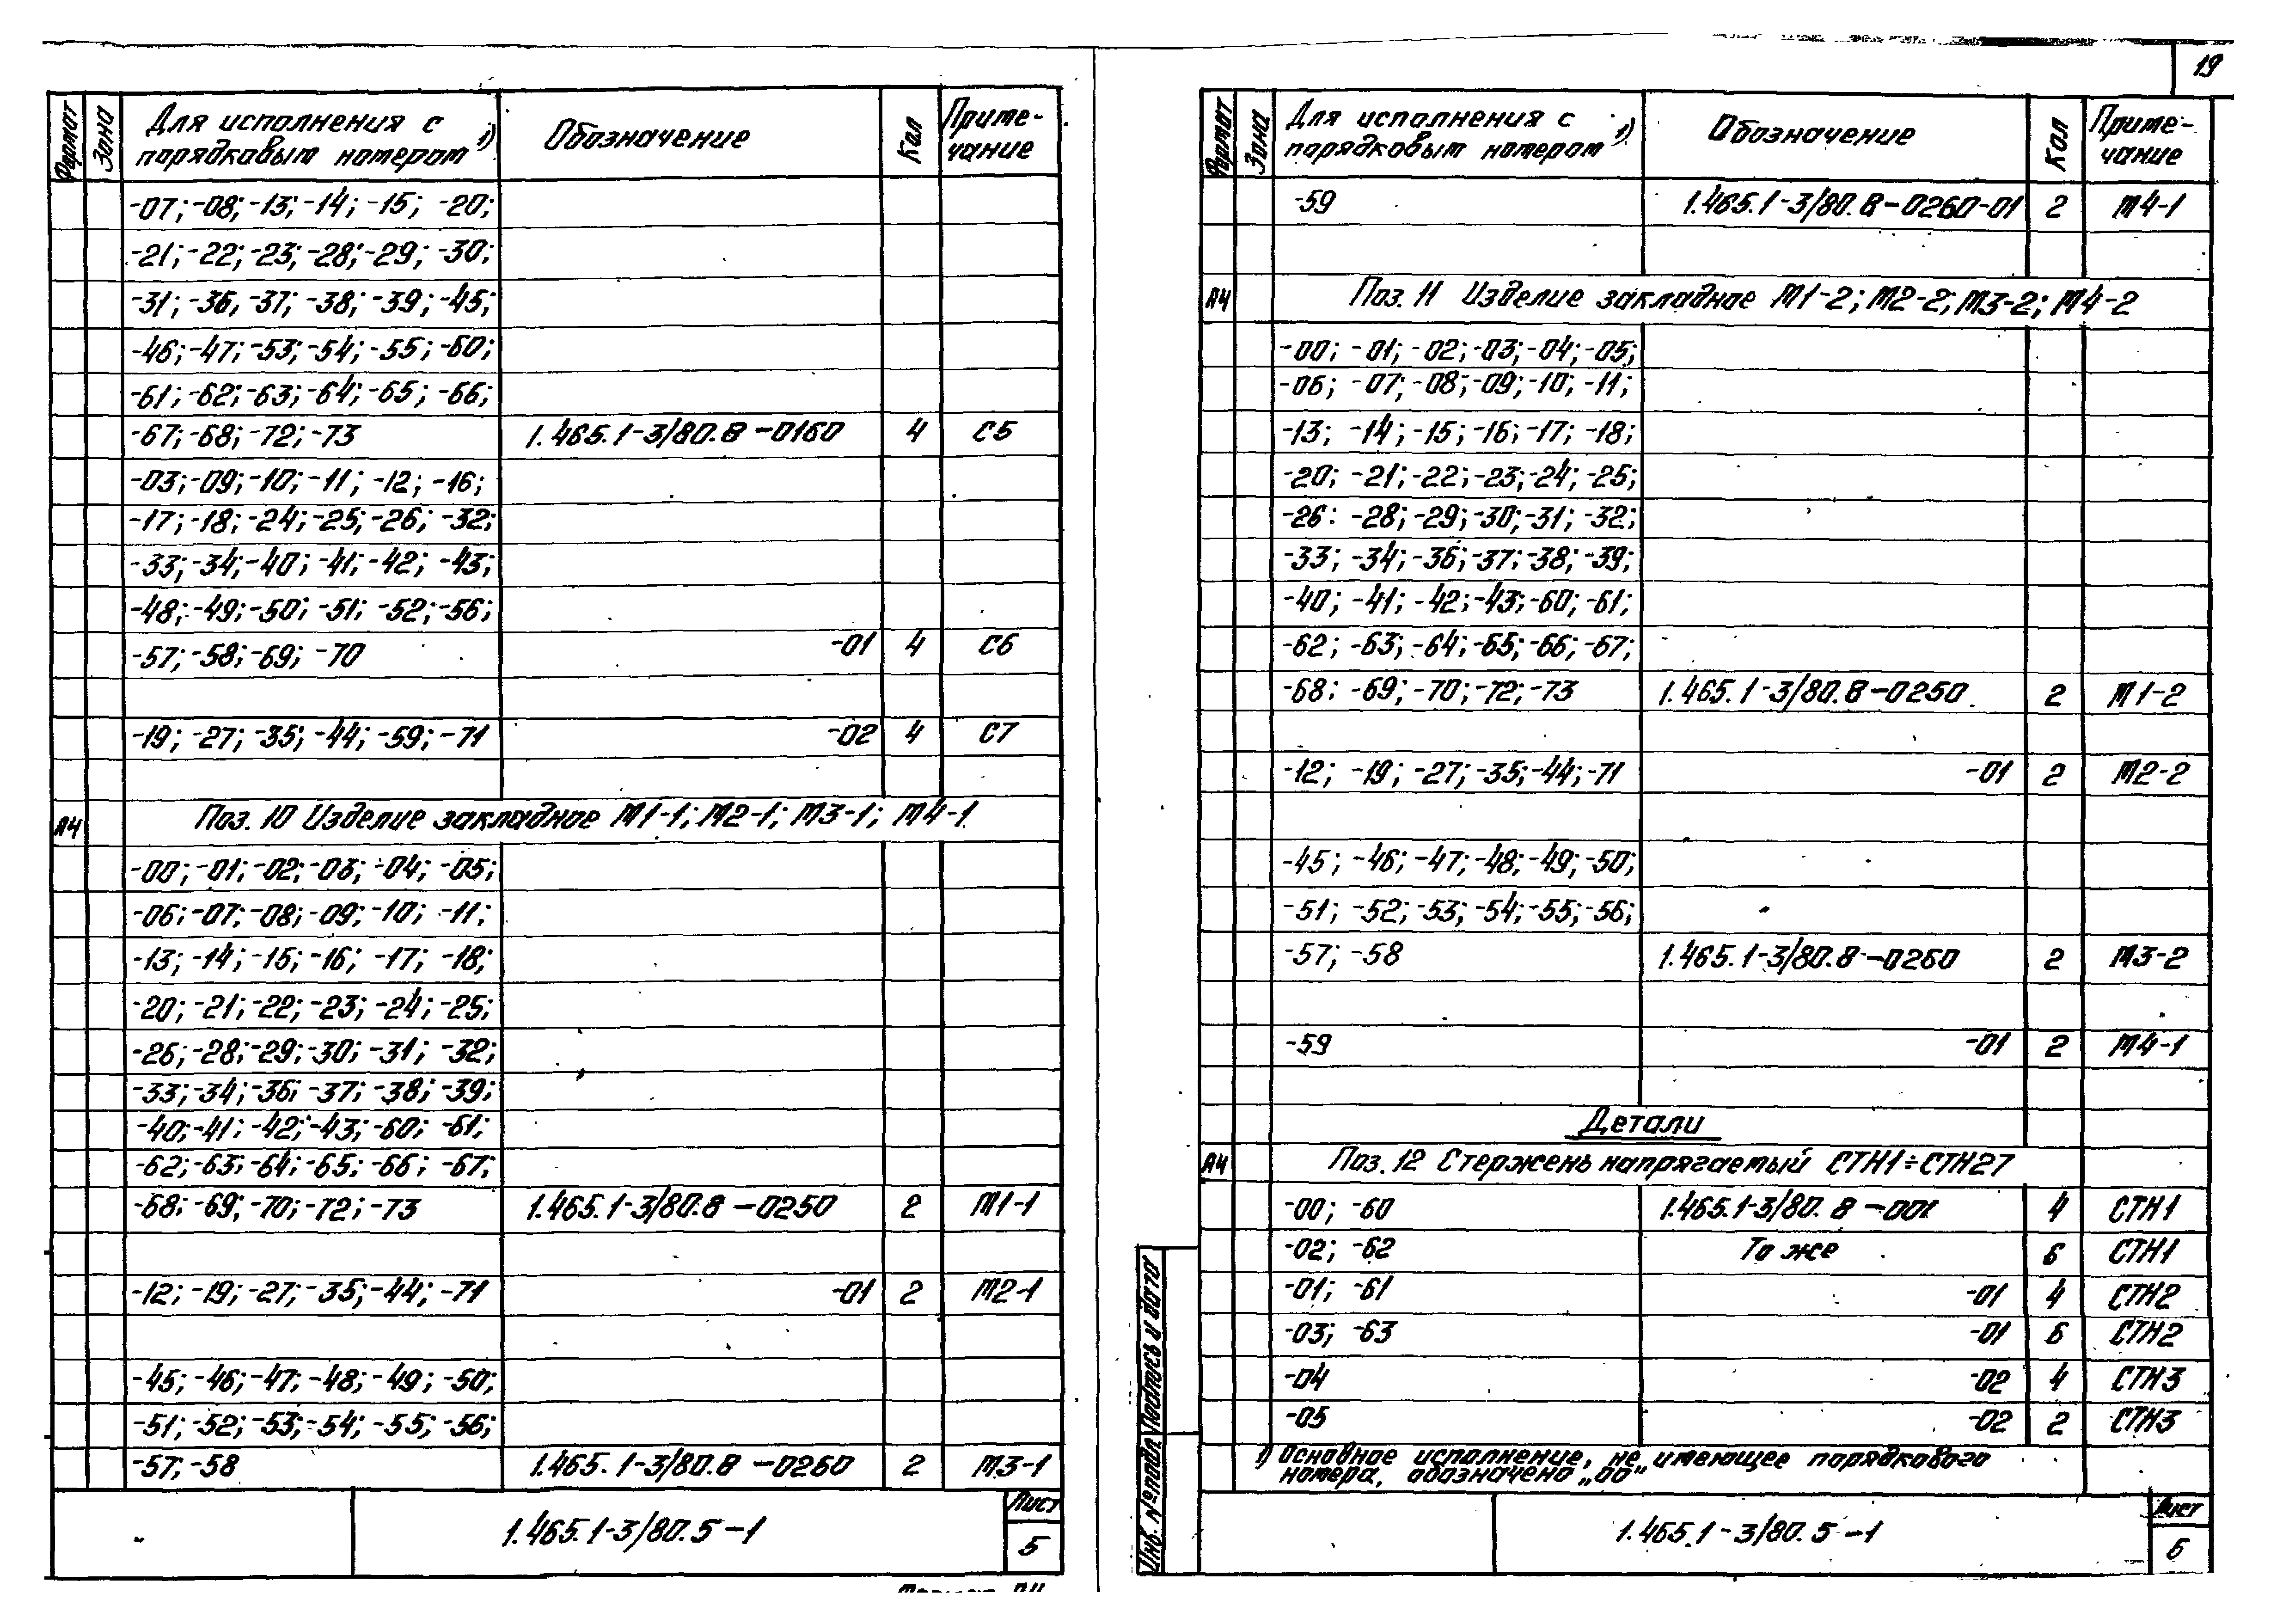 19
Формат Зона Для исполнения с порядковым номером 1) Обозначение Кол Приме-чание
-07; -08; -13; -14; -15; -20;
-21; -22; -23; -28; -29; -30;
-31; -36, -37; -38; -39; -45;
-46; -47; -53; -54; -55; -60;
-61; -62; -63; -64; -65; -66;
-67; -68; -72; -73 1.465.1-3/80.8-0160 4 С5
-03; -09; -10; -11; -12; -16;
-17; -18; -24; -25; -26; -32;
-33; -34; -40; -41; -42; -43;
-48; -49; -50; -51; -52; -56;
-57; -58; -69; -70 -01 4 С6
-19; -27; -35; -44; -59; -71 -02 4 С7
А4 Поз. 10 Изделие закладное М1-1; М2-1; М3-1; М4-1
-00; -01; -02; -03; -04; -05;
-06; -07; -08; -09; -10; -11;
-13; -14; -15; -16; -17; -18;
-20; -21; -22; -23; -24; -25;
-26; -28; -29; -30; -31; -32;
-33; -34; -36; -37; -38; -39;
-40; -41; -42; -43; -60; -61;
-62; -63; -64; -65; -66; -67;
-68; -69; -70; -72; -73 1.465.1-3/80.8-0250 2 М1-1
-12; -19; -27; -35; -44; -71 -01 2 М2-1
-45; -46; -47; -48; -49; -50;
-51; -52; -53; -54; -55; -56;
-57; -58 1.465.1-3/80.8-0260 2 М3-1
1.465.1-3/80.5-1 Лист 5
Формат Зона Для исполнения с порядковым номером 1) Обозначение Кол Приме-чание
-59 1.465.1-3/80.8-0260-01 2 М4-1
А4 Поз. 11 Изделие закладное М1-2; М2-2; М3-2; М4-2
-00; -01; -02; -03; -04; -05;
-06; -07; -08; -09; -10; -11;
-13; -14; -15; -16; -17; -18;
-20; -21; -22; -23; -24; -25;
-26: -28; -29; -30; -31; -32;
-33; -34; -36; -37; -38; -39;
-40; -41; -42; -43; -60; -61;
-62; -63; -64; -65; -66; -67;
-68; -69; -70; -72; -73 1.465.1-3/80.8-0250 2 М1-2
-12; -19; -27; -35; -44; -71 -01 2 М2-2
-45; -46; -47; -48; -49; -50;
-51; -52; -53; -54; -55; -56;
-57; -58 1.465.1-3/80.8-0260 2 М3-2
-59 -01 2 М4-1
Детали
А4 Поз. 12 Стержень напрягаемый СТН1÷СТН27
-00; -60 1.465.1-3/80.8-001 4 СТН1
-02; -62 То же 6 СТН1
-01; -61 -01 4 СТН2
-03; -63 -01 6 СТН2
-04 -02 4 СТН3
-05 -02 2 СТН3
1) Основное исполнение, не имеющее порядкового
номера, обозначено „00"
Инв. № подл. Подпись и дата
1.465.1-3/80.5-1 Лист 6